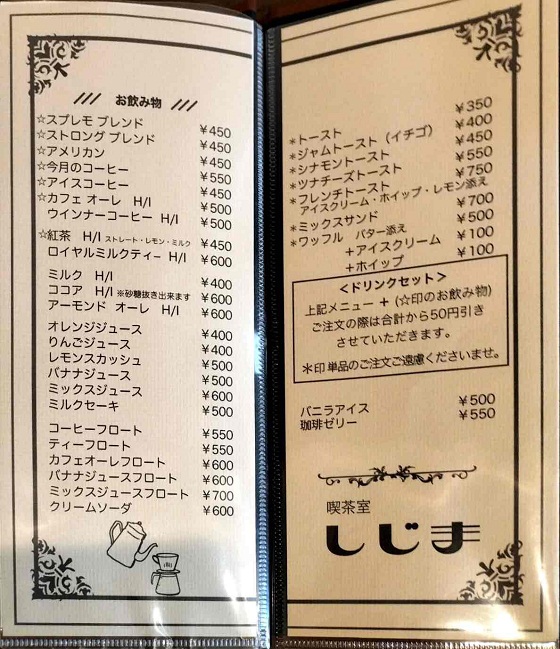 お飲み物
☆スプレモ ブレンド ¥450
☆ストロング ブレンド ¥500
☆アメリカン ¥450
☆今月のコーヒー ¥550
☆アイスコーヒー ¥450
☆カフェ オーレ H/I ¥500
ウインナーコーヒー H/I ¥500
☆紅茶 H/I ストレート・レモン・ミルク ¥450
ロイヤルミルクティー H/I ¥600
ミルク H/I ¥400
ココア H/I ※砂糖抜き出来ます ¥600
アーモンド オーレ H/I ¥600
オレンジジュース ¥400
りんごジュース ¥400
レモンスカッシュ ¥500
バナナジュース ¥500
ミックスジュース ¥600
ミルクセーキ ¥500
コーヒーフロート ¥550
ティーフロート ¥550
カフェオーレフロート ¥600
バナナジュースフロート ¥600
ミックスジュースフロート ¥700
クリームソーダ ¥600
＊トースト ¥350
＊ジャムトースト（イチゴ） ¥400
＊シナモントースト ¥450
＊ツナチーズトースト ¥550
＊フレンチトースト ¥750
アイスクリーム・ホイップ・レモン添え
＊ミックスサンド ¥700
＊ワッフル バター添え ¥500
＋アイスクリーム ¥100
＋ホイップ ¥100
＜ドリンクセット＞
上記メニュー ＋ (☆印のお飲み物)
ご注文の際は合計から50円引き
させていただきます。
＊印 単品のご注文ご遠慮くださいませ。
バニラアイス ¥500
珈琲ゼリー ¥550
喫茶室
しじま